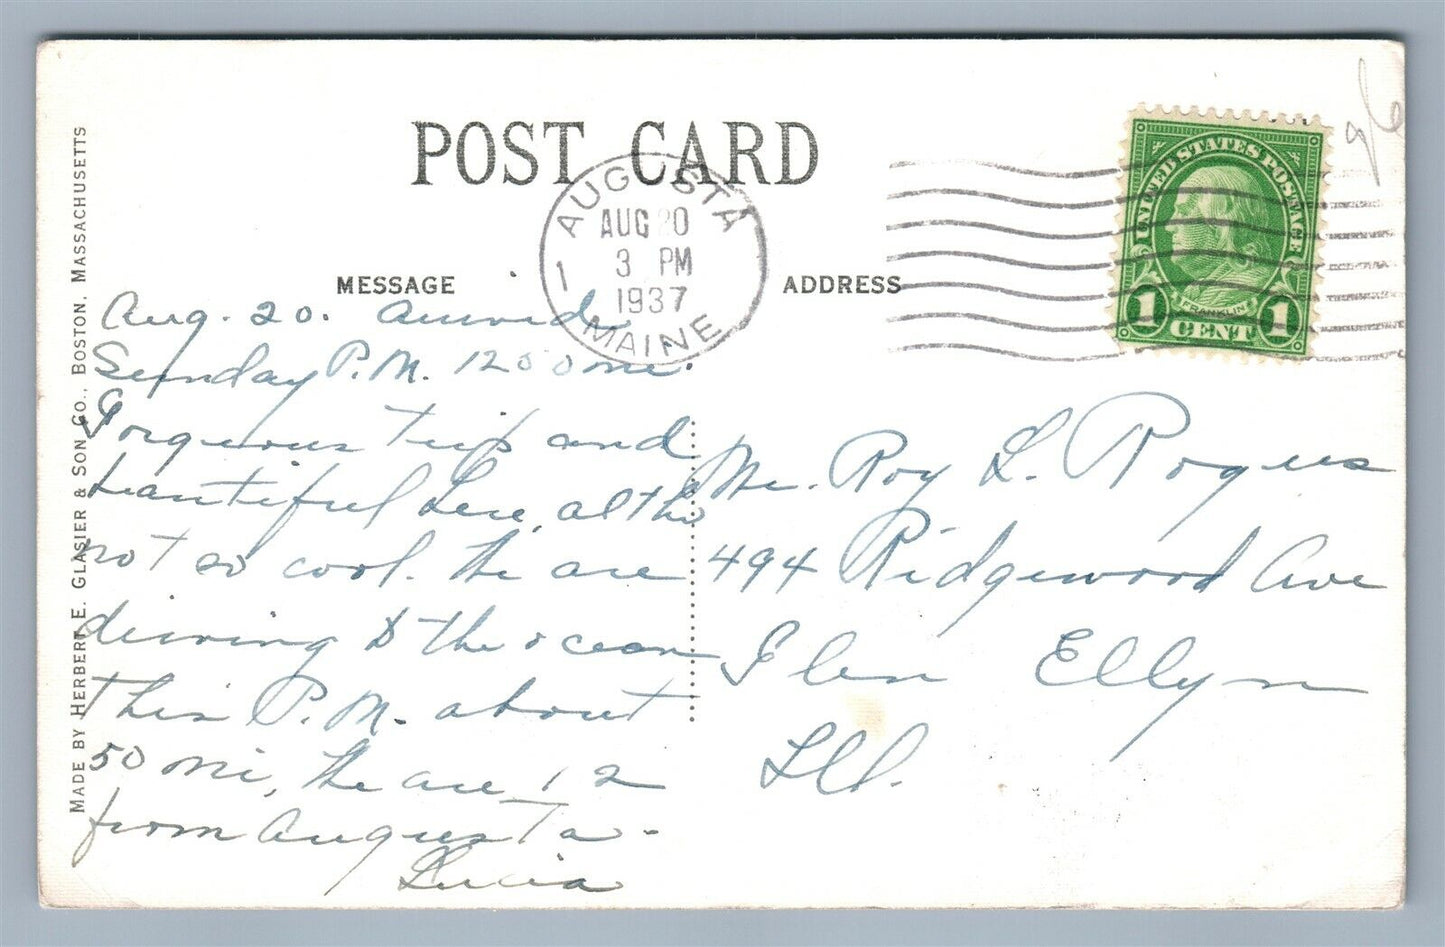 POST CARD
MESSAGE
ADDRESS
AUGUSTA
AUG 20
3 PM
1937
MAINE
1
UNITED STATES POSTAGE
FRANKLIN
1 CENT 1
MADE BY HERBERT E. GLASIER & SON CO., BOSTON, MASSACHUSETTS
Aug. 20. Arrived
Sunday P.M. 1200 mi.
Gorgeous trip and
beautiful here, altho
not so cool. We are
driving to the ocean
this P.M. about
50 mi, We are 12
from Augusta -
Lucia
Mr. Roy L. Rogers
494 Ridgewood Ave
Glen Ellyn
Ill.